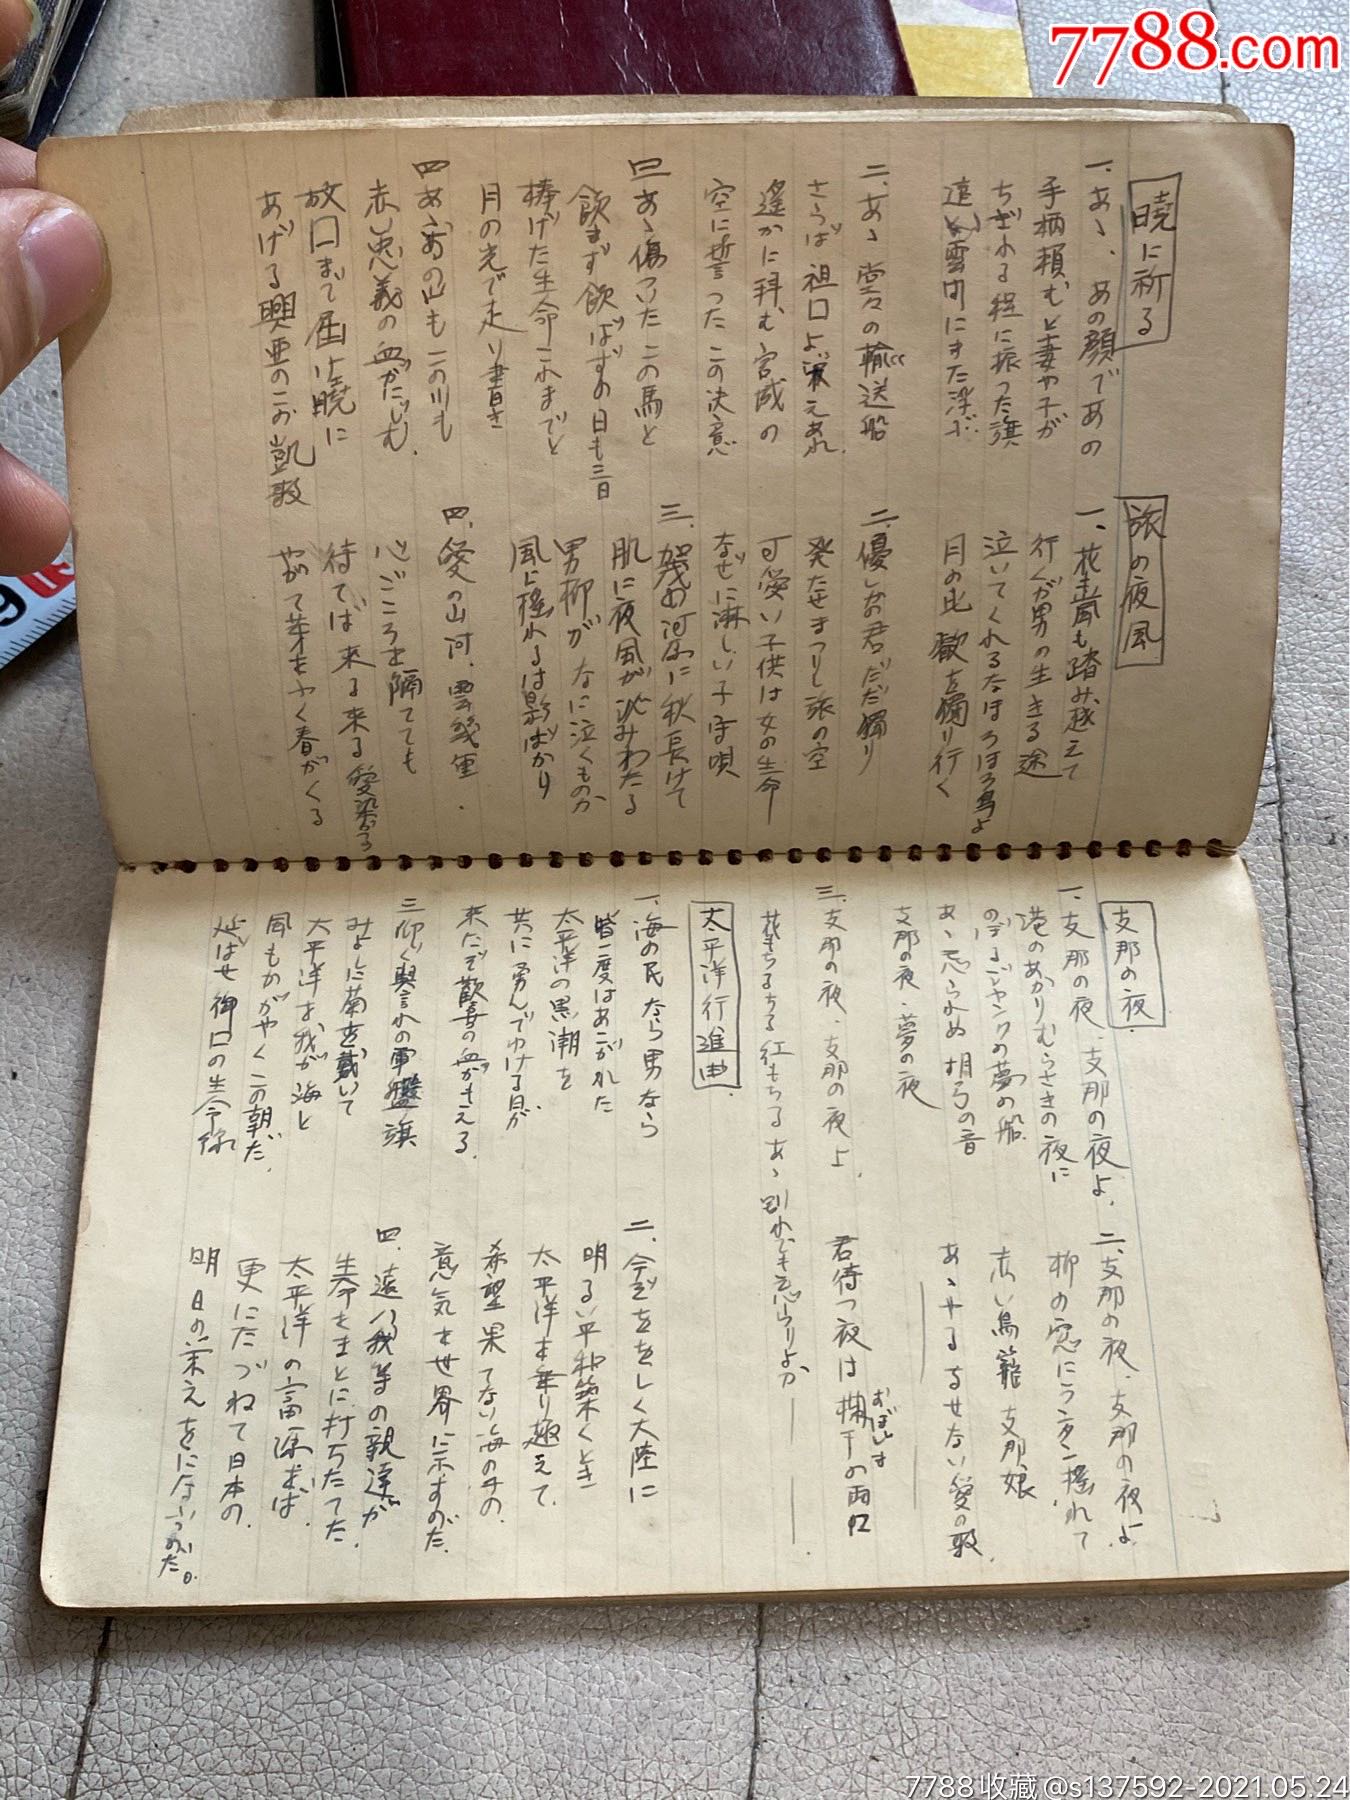 7788.com
暁に祈る
一、あゝ、あの顔であの
手柄頼むと妻や子が
ちぎれる程に振った旗
遠い雲間にまた浮ぶ
二、あゝ堂々の輸送船
さらば祖口よ栄えあれ
遙かに拝む宮城の
空に誓ったこの決意
三あゝ傷ついたこの馬と
飲まず飲ばずの日も三日
捧げた生命これまでと
月の光で走り書き
四あゝあの山もこの川も
赤い忠義の血がにじむ
故口まで届け暁に
あげる興亜のこの凱歌
旅の夜風
一、花も嵐も踏み越えて
行くが男の生きる途
泣いてくれるなほろほろ鳥よ
月の比叡を獨り行く
二、優しの君ただ獨り
発たせまつりし旅の空
可愛い子供は女の生命
なぜに淋しい子守唄
三、賀茂の河原に秋長けて
肌に夜風が沁みわたる
男柳がなに泣くものか
風に揺れるは影ばかり
四、愛の山河、雲幾重、
心ごころを隔てても
待てば来る来る愛染かつら
やがて芽をふく春がくる
支那の夜
一、支那の夜、支那の夜よ、
港のあかりむらさきの夜に
のぼるジャンクの夢の船
あゝ忘られぬ胡弓の音
支那の夜、夢の夜
二、支那の夜、支那の夜よ、
柳の窓にランタン揺れて
赤い鳥籠支那娘
あゝやるせない愛の歌、
三、支那の夜、支那の夜よ、
君待つ夜は欄干の雨に
おばしま
花もちるちる紅もちるあゝ別れても忘らりよか
太平洋行進曲
一、海の民なら男なら
皆一度はあこがれた
太平洋の黒潮を
共に勇んでゆける日が
来たぞ歓喜の血がもえる、
二、今ぞををしく大陸に
明るい平和築くとき
太平洋を乗り越えて、
希望果てない海の子の、
意気を世界に示すのだ、
三仰ぐ誉れの軍艦旗
みよしに菊を戴いて
太平洋を我が海と
風もかがやくこの朝だ、
延ばせ御口の生命線
四、遠い我等の親達が
生命をまとに打ちたてた、
太平洋の富源をば、
更にたづねて日本の、
明日の栄えをになふのだ。
7788收藏@s137592-2021.05.24